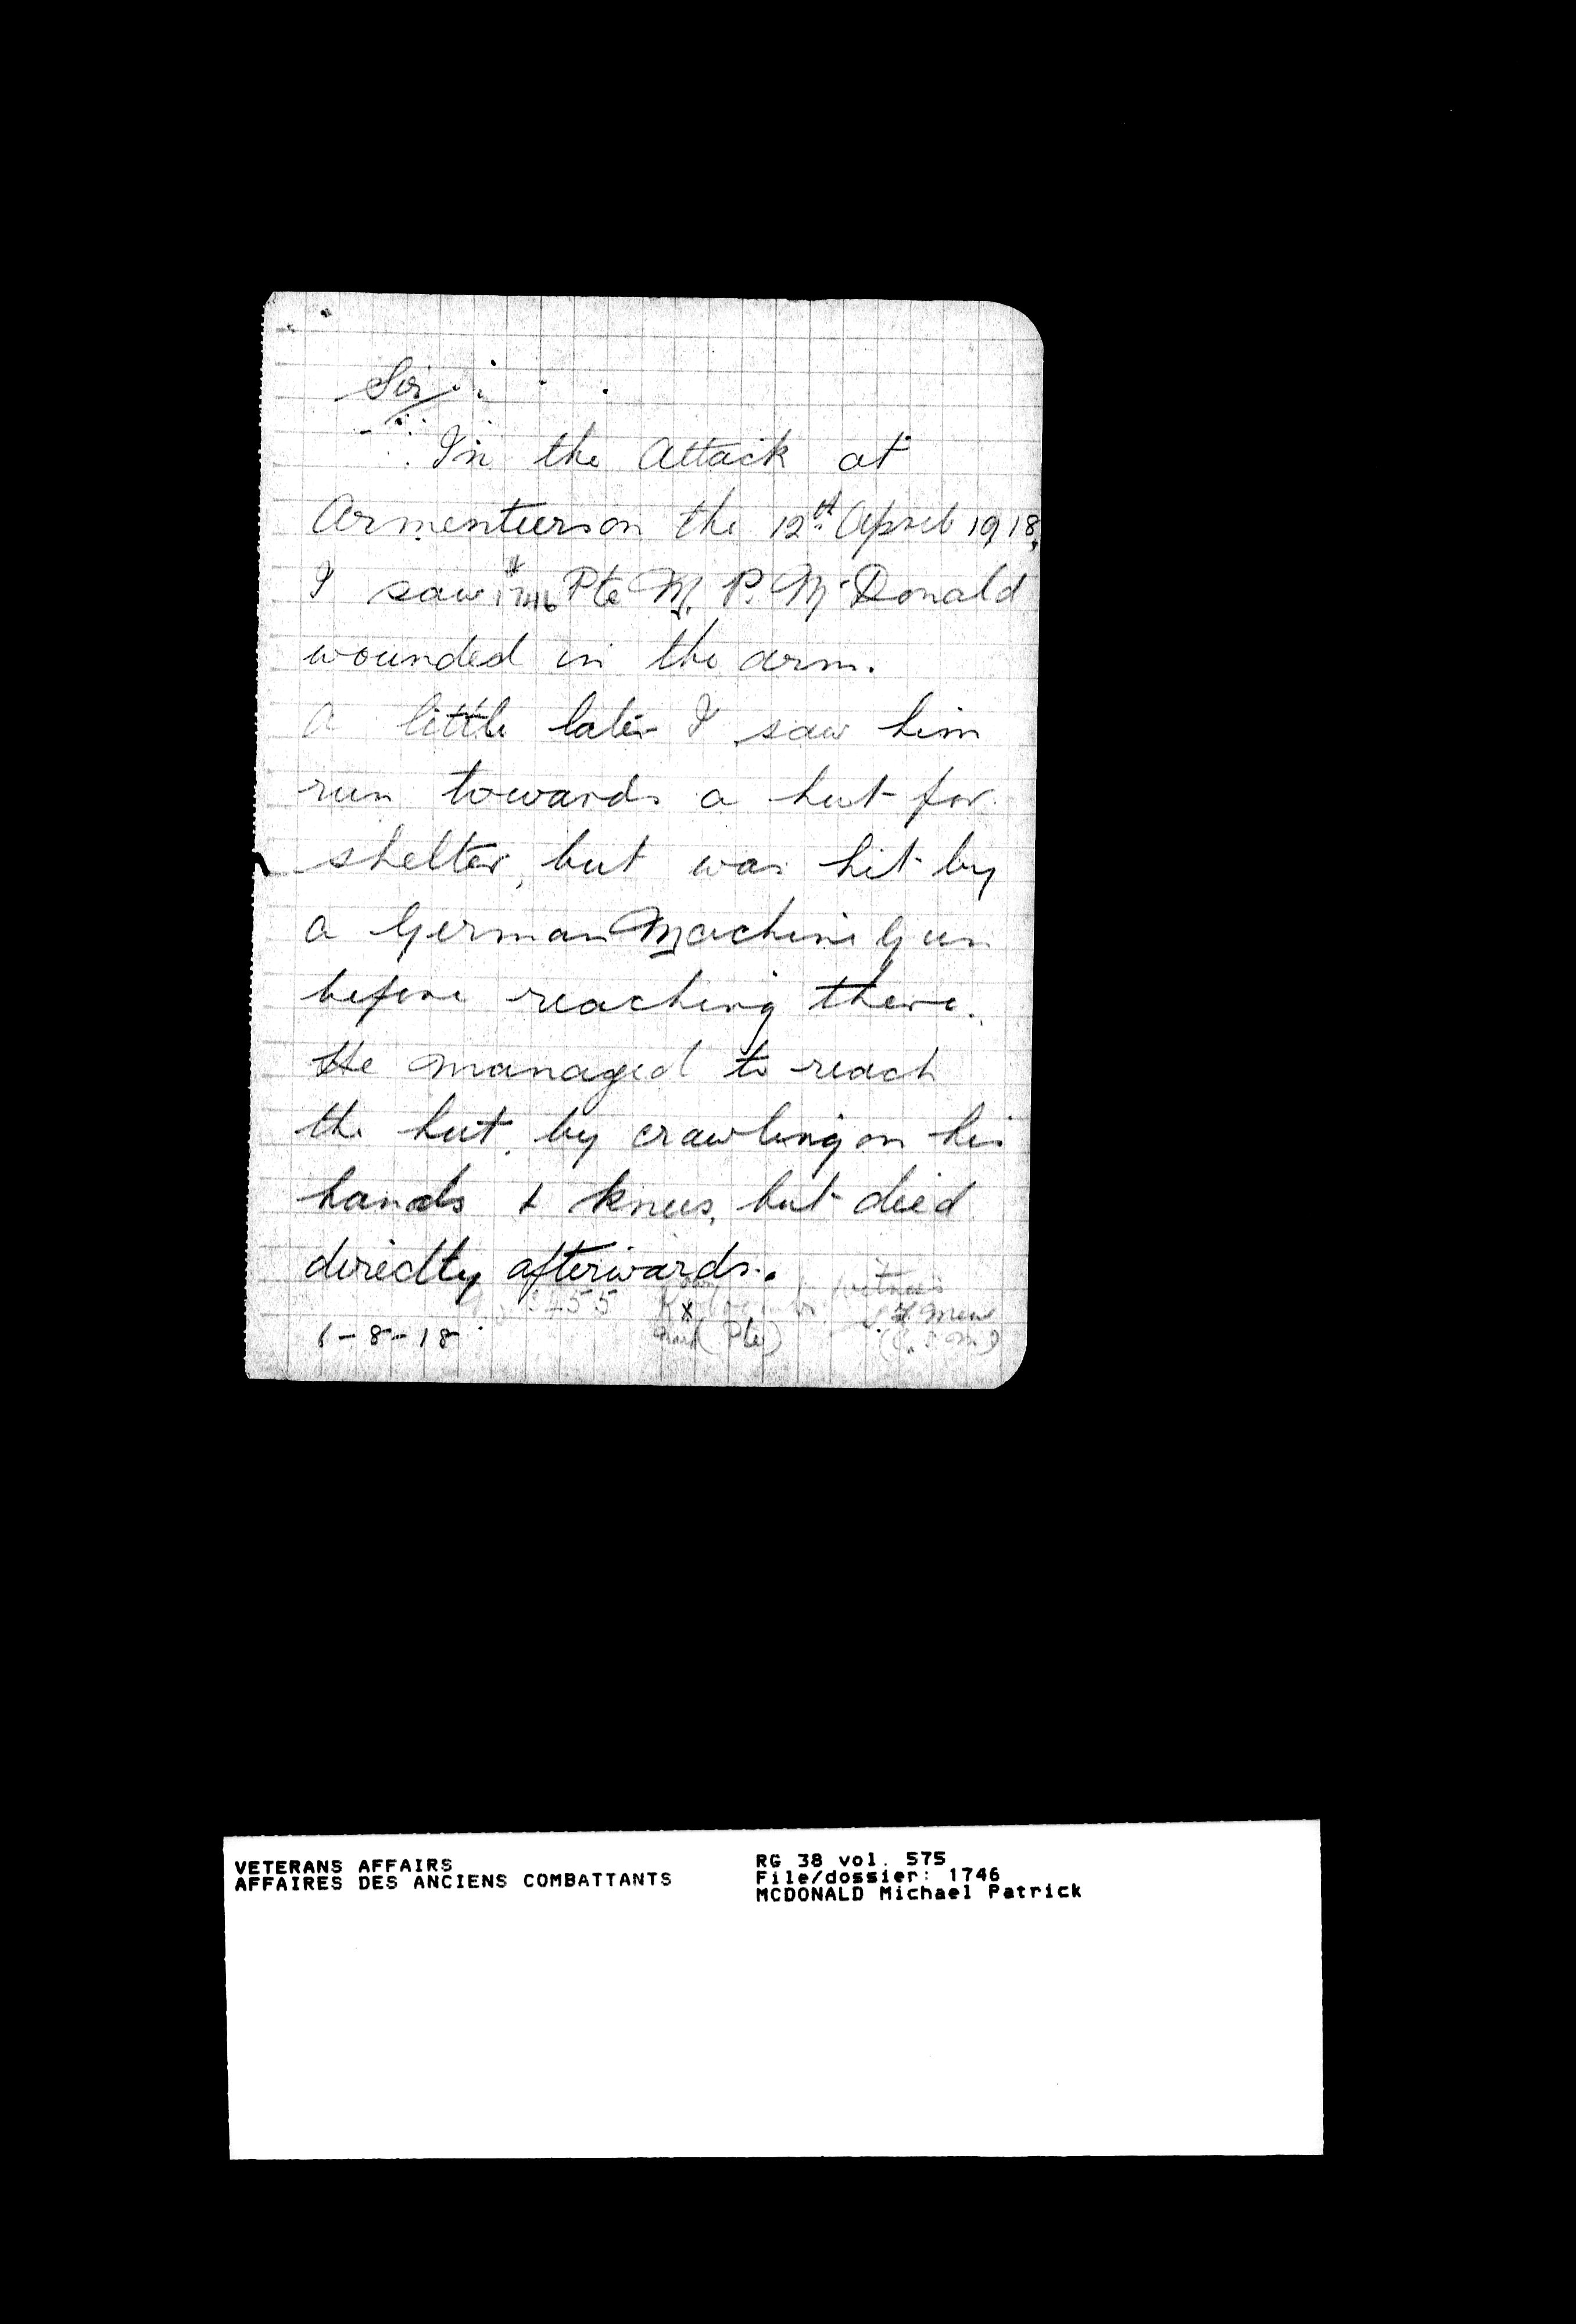 Sir:
In the Attack at
Armentiers on the 12th April 1918,
I saw # 1746 Pte M. P. McDonald
wounded in the arm.
A little later I saw him
run towards a hut for
shelter, but was hit by
a German Machine Gun
before reaching there.
He managed to reach
the hut, by crawling on his
hands & knees, but died
directly afterwards.
witness
3455
X
mark (Pte)
(C.S.M.)
1-8-18
VETERANS AFFAIRS
AFFAIRES DES ANCIENS COMBATTANTS
RG 38 vol. 575
File/dossier: 1746
MCDONALD Michael Patrick